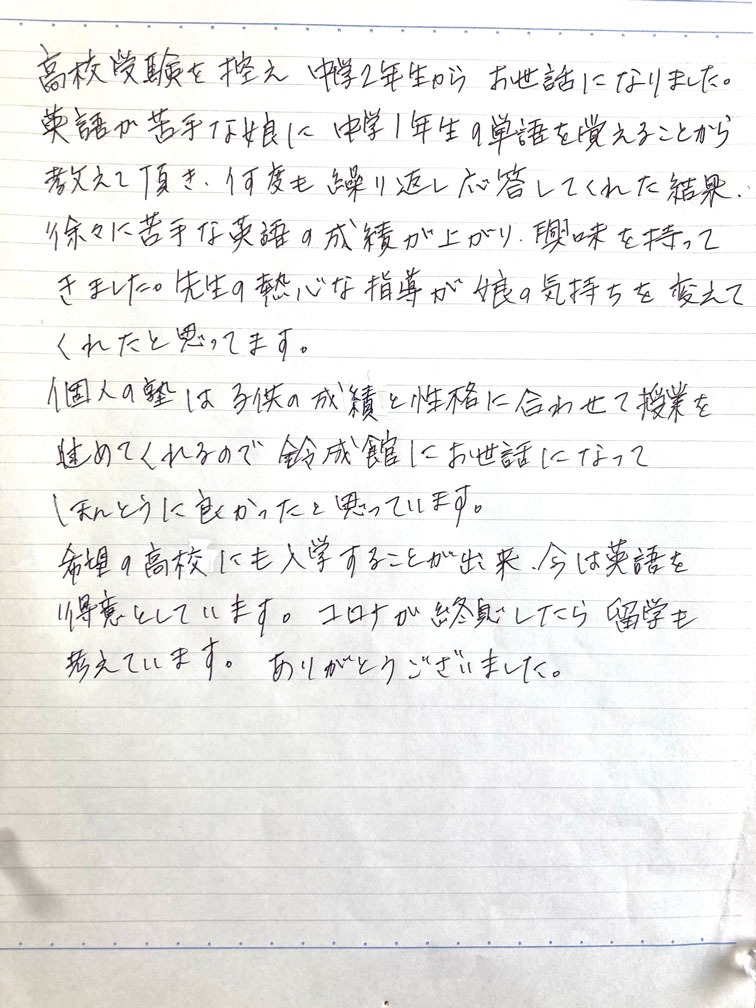 高校受験を控え 中学2年生から お世話になりました。
英語が苦手な娘に 中学1年生の単語を覚えることから
教えて頂き、何度も繰り返し応答してくれた結果、
徐々に苦手な英語の成績が上がり、興味を持って
きました。先生の熱心な指導が 娘の気持ちを変えて
くれたと思ってます。
個人の塾は子供の成績と性格に合わせて授業を
進めてくれるので 鈴成館にお世話になって
ほんとうに良かったと思っています。
希望の高校にも入学することが出来、今は英語を
得意としています。コロナが終息したら留学も
考えています。 ありがとうございました。